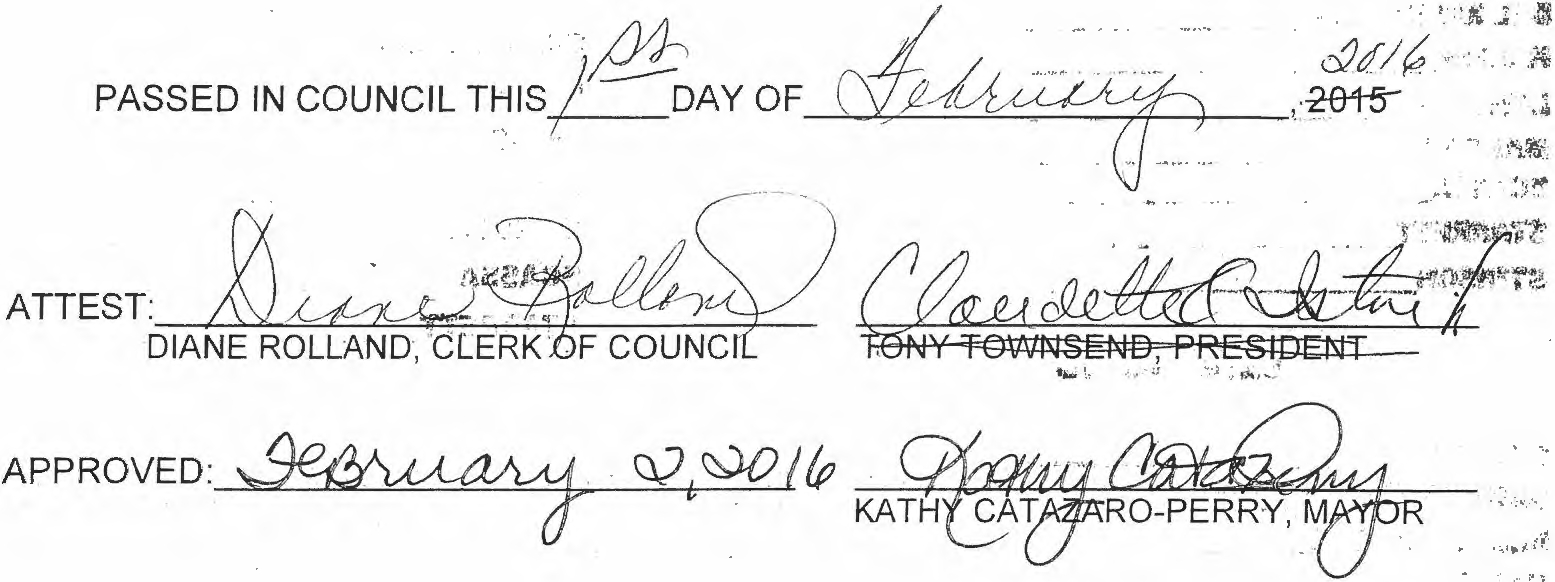 2016
PASSED IN COUNCIL THIS 1st DAY OF February, 2015
ATTEST: Diane Rolland Claudette
DIANE ROLLAND, CLERK OF COUNCIL TONY TOWNSEND, PRESIDENT
APPROVED: February 2, 2016 Kathy Catazaro-Perry
KATHY CATAZARO-PERRY, MAYOR